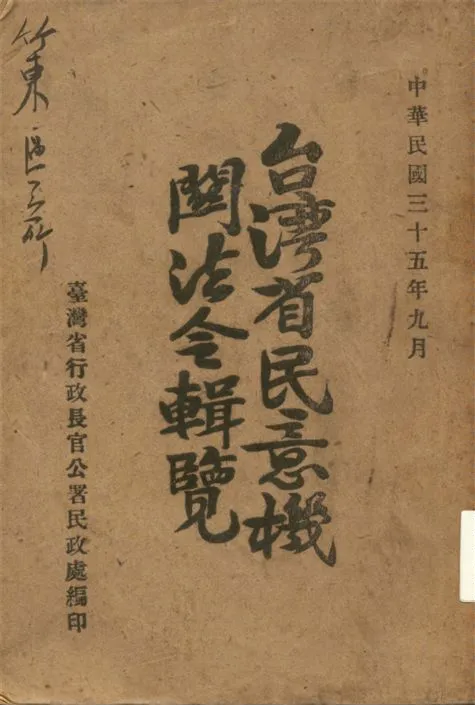 中華民國三十五年九月
台湾省民意機
関法令輯覽
臺灣省行政長官公署民政處編印
竹東區公所